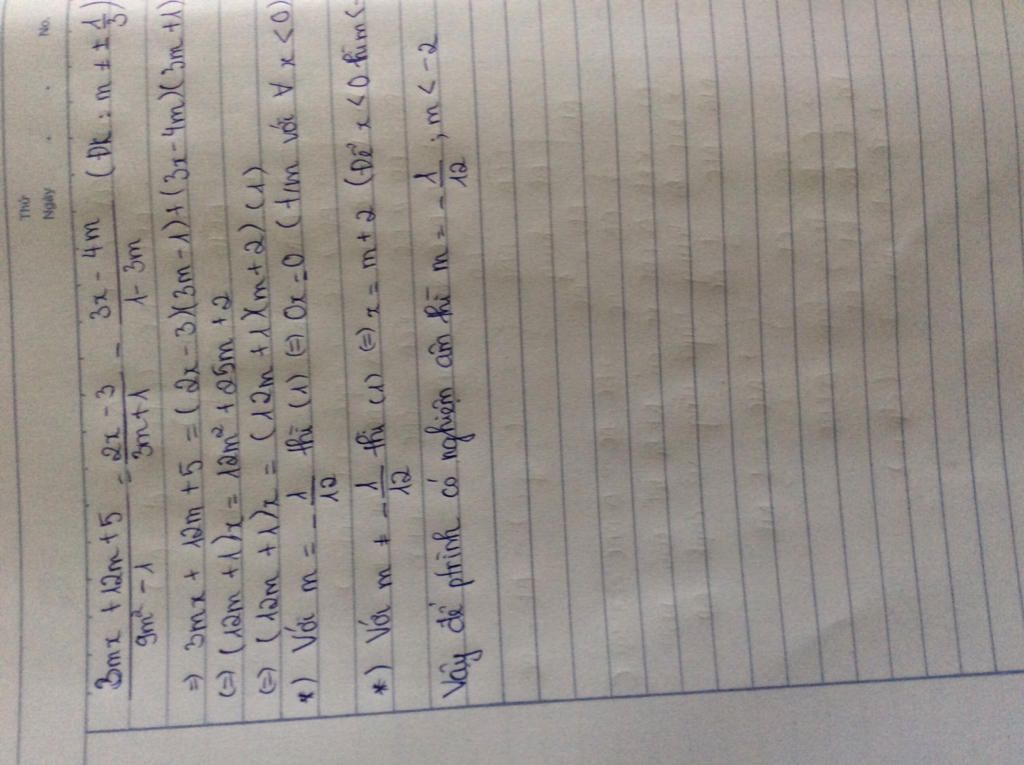 Thứ
Ngày
No.
3mx + 12m + 5 / 9m² - 1 = 2x - 3 / 3m + 1 - 3x - 4m / 1 - 3m (Đk : m ≠ ± 1/3)
=) 3mx + 12m + 5 = (2x - 3)(3m - 1) + (3x - 4m)(3m + 1)
(=) (12m + 1)x = 12m² + 25m + 2
(=) (12m + 1)x = (12m + 1)(m + 2) (1)
*) Với m = - 1/12 thì (1) (=) 0x = 0 (tm với ∀ x < 0)
*) Với m ≠ - 1/12 thì (1) (=) x = m + 2 (Để x < 0 thì m < -
Vậy để ptrình có nghiệm âm thì m = - 1/12 ; m < -2